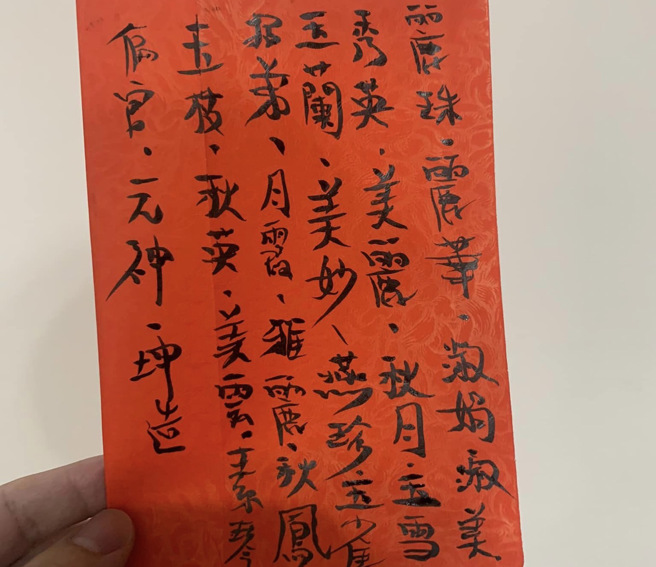 麗珠、麗華、淑娟淑美
秀英、美麗、秋月、玉雪
玉蘭、美妙、燕珍玉
弟、月霞、雅麗、秋鳳
玉枝、秋英、美雲、素琴
元神、坤造